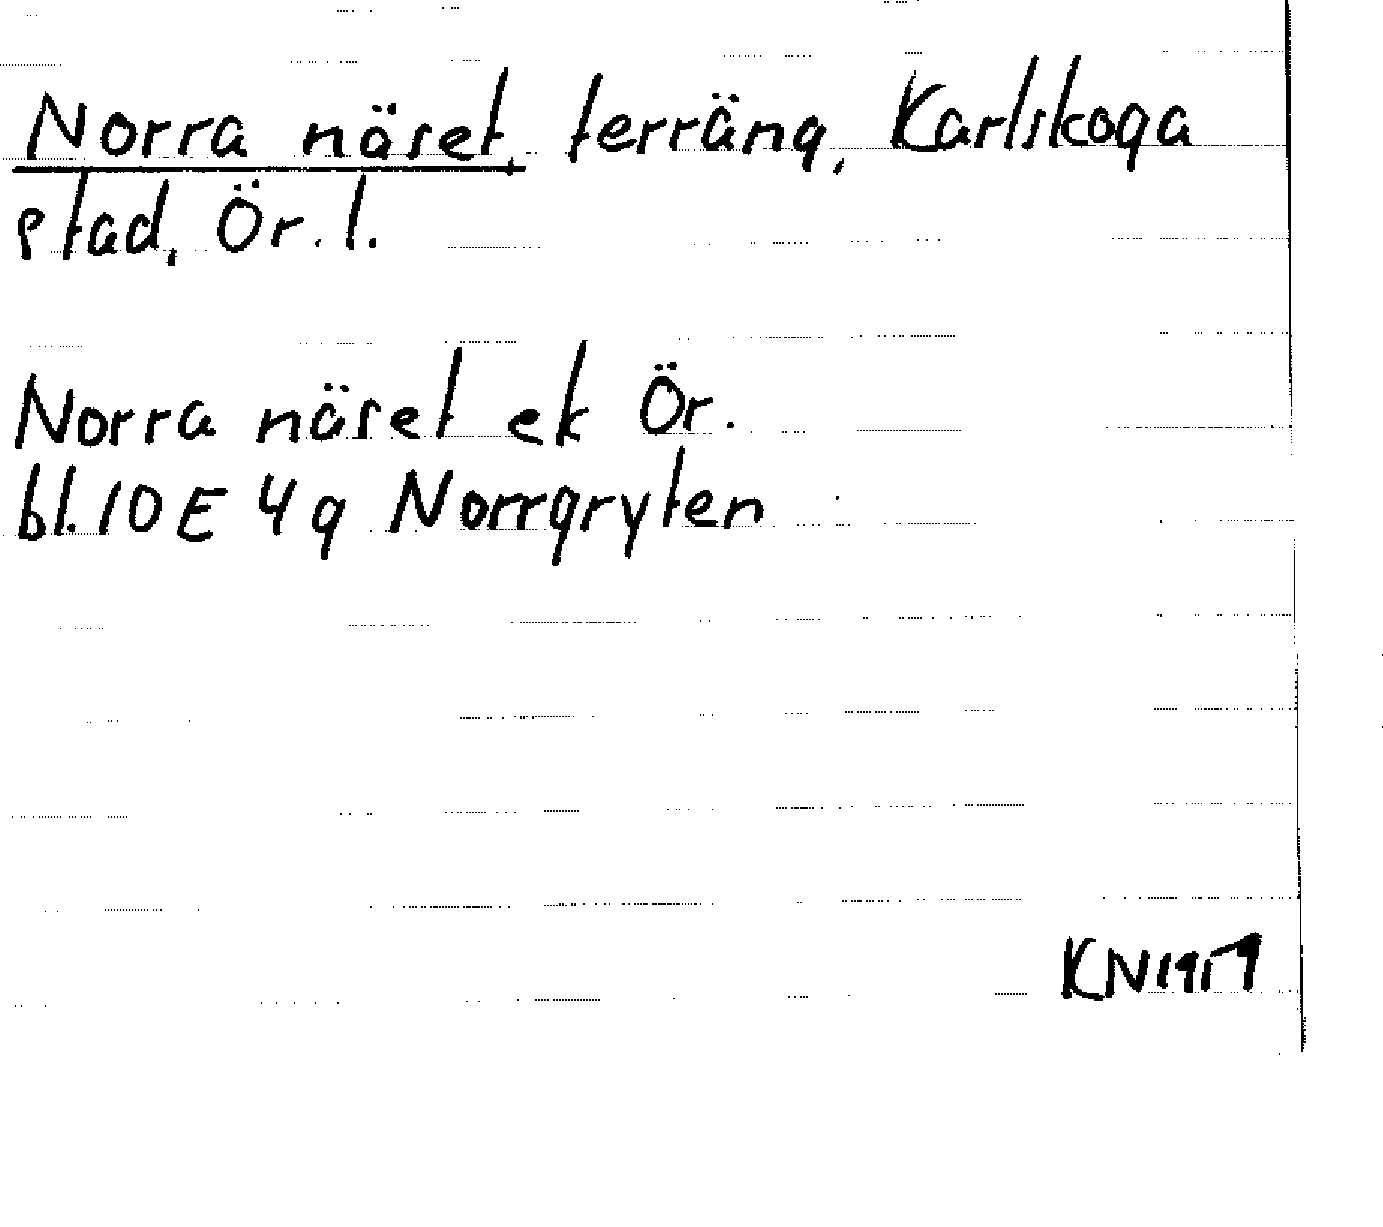 Norra näset, terräng, Karlskoga
stad, Ör. l.
Norra näset ek Ör.
bl. 10 E 4 g Norrgryten